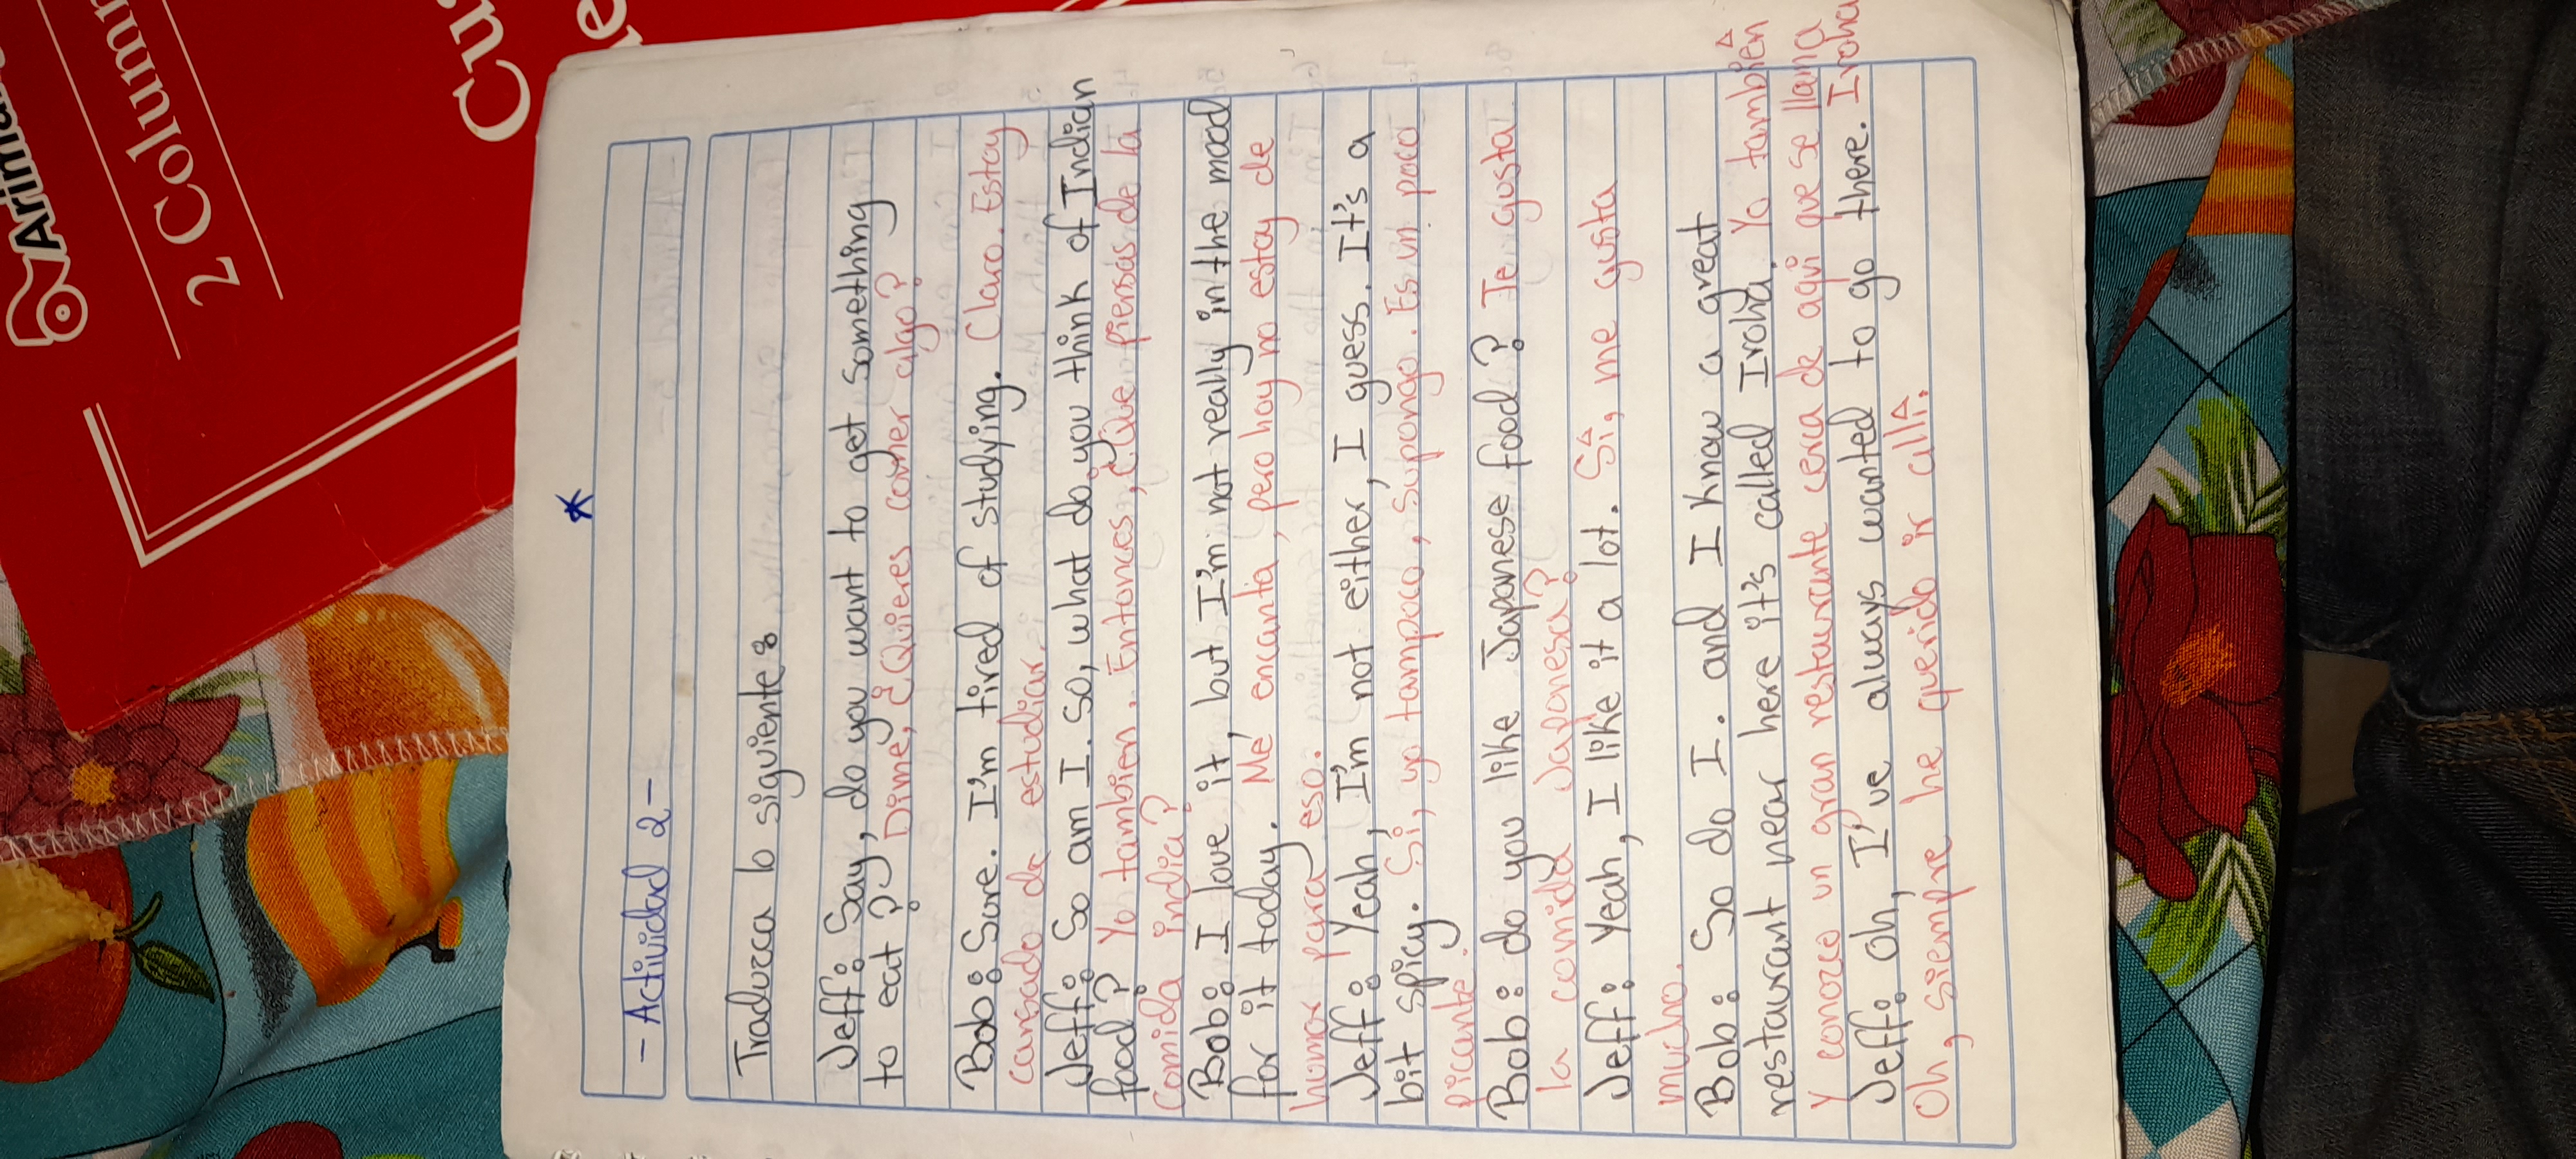 Arima
2 Column
Cu
- Actividad 2 -
Traduzca lo siguiente:
Jeff: Say, do you want to get something
to eat? Dime, ¿Quieres comer algo?
Bob: Sure. I'm tired of studying. Claro. Estoy
cansado de estudiar.
Jeff: So am I. so, what do you think of Indian
food? Yo tambien. Entonces, ¿Que piensas de la
Comida india?
Bob: I love it, but I'm not really in the mood
for it today. Me encanta, pero hoy no estoy de
humor para eso.
Jeff: Yeah, I'm not either, I guess. It's a
bit spicy. Si, yo tampoco, supongo. Es un poco
picante.
Bob: do you like Japanese food? Te gusta
la comida Japonesa?
Jeff: Yeah, I like it a lot. Sí, me gusta
mucho.
Bob: So do I. and I know a great
restaurant near here it's called Iroha. Yo también
Y conozco un gran restaurante cerca de aqui que se llama
Iroha
Jeff: oh, I've always wanted to go there.
Oh, siempre he querido ir allí.